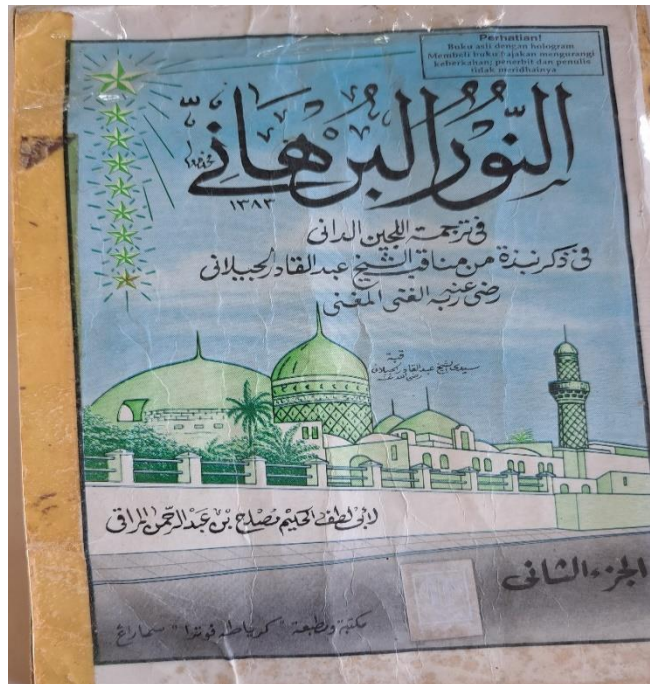 Perhatian!
Buku asli dengan hologram
Membeli buku bajakan mengurangi
keberkahan; penerbit dan penulis
tidak meridhainya
النُّورُ البُرْهَانِيّ
١٣٨٣
في ترجمة اللجين الداني
في ذكر نبذة من مناقب الشيخ عبد القادر الجيلاني
رضي عنه ربه الغني المغني
قبة
سيدي الشيخ عبد القادر الجيلاني
رضي الله عنه
لابي لطف الحكيم مصلح بن عبد الرحمن المراقي
الجزء الثاني
مكتبة ومطبعة "كرياطه فوترا" سماراغ